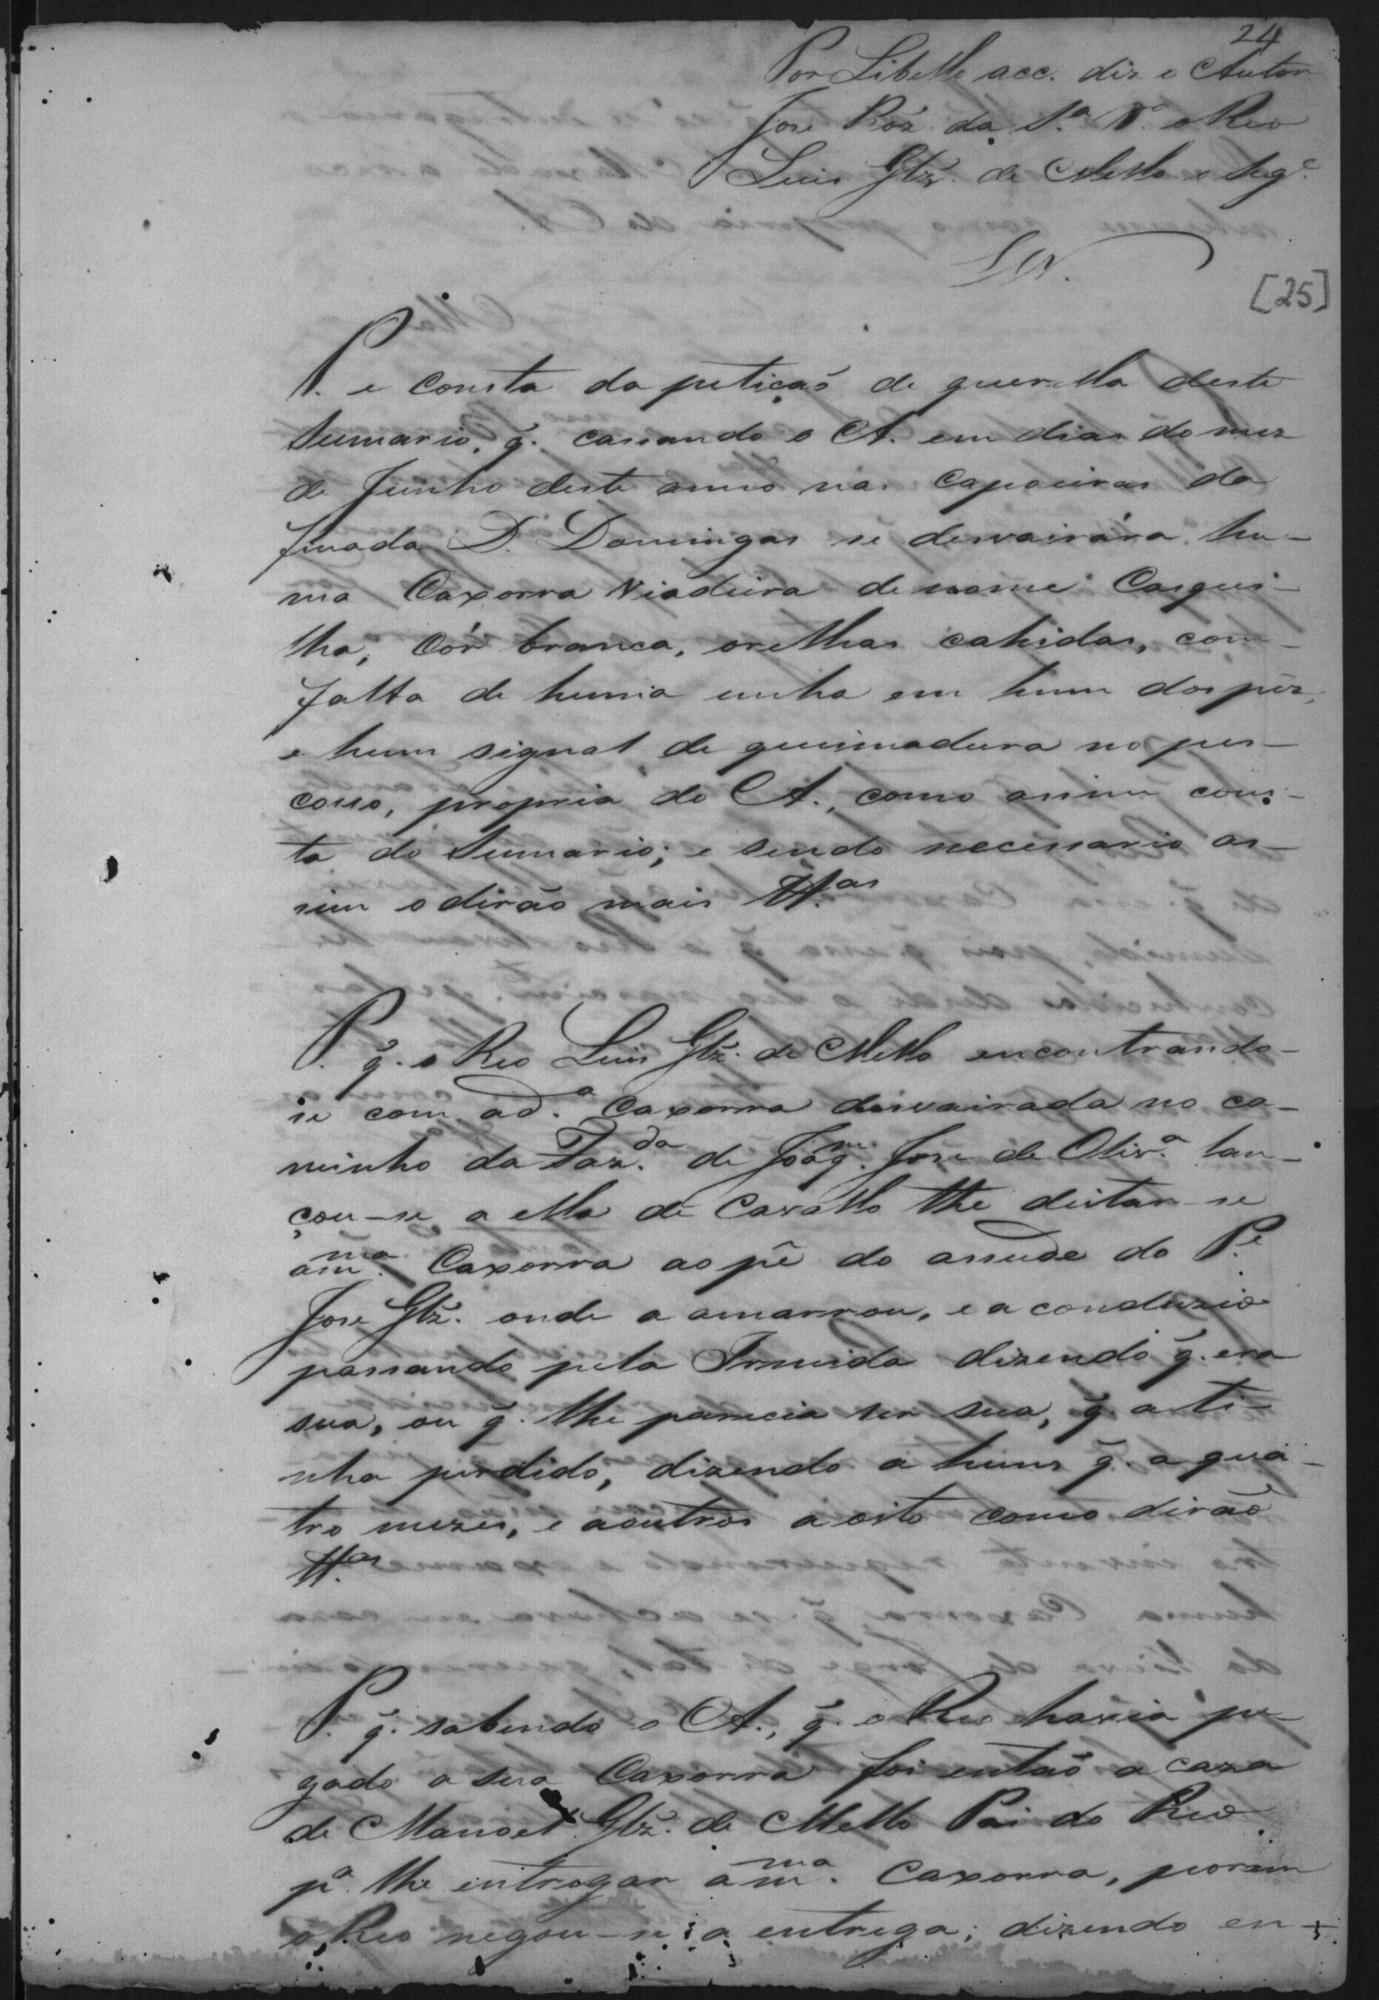 24
Por Libello acc. diz o Autor
Jose Roz. da S.ª V.ª o Reo
Luis Glz. de Mello o seg.e
[25]
P. e consta da petição de querella deste
Sumario, q̃. cassando o A. em dias do mez
de Junho deste anno nas capoeiras da
finada D. Domingas se desvairára hu-
ma Caxorra Viadeira de nome Casqui-
lha, Cór branca, orelhas cahidas, com
falta de huma unha em hum dos pés,
e hum signal de queimadura no pes-
coso, propria do A., como assim cons-
ta do Sumario; e sendo necessario as-
sim o dirão mais tt.as
P. q̃. o Reo Luis Glz. de Mello encontrando-
se com a d.ª Caxorra desvairada no ca-
minho da Faz.da de Joaq.m Jose de Oliv.ª lan-
çou-se a ella de Cavallo the deitar-se
a m.ma Caxorra ao pé do assude do P.e
Jose Glz. onde a amarrou, e a conduzio
passando pela Ermida dizendo q̃. era
sua, ou q̃. lhe parecia ser sua, q̃ a ti-
nha perdido, dizendo a huns q̃. a qua-
tro mezes, e a outros a oito como dirão
tt.as
P. q̃. sabendo o A., q̃. o Reo havia pe-
gado a sua Caxorra foi então a caza
de Manoel Glz. de Mello Pai do Reo
p.ª lhe entregar a m.ma Caxorra, porem
o Reo negou-se a entrega; dizendo en-